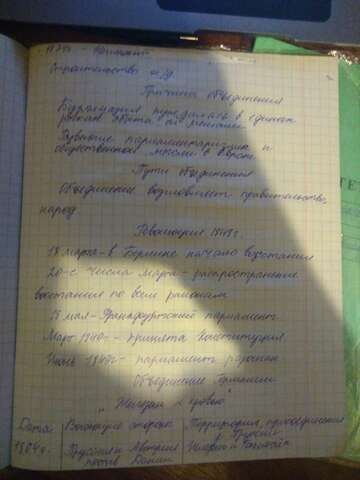 Строительство жд
Причина объединения
Буржуазия нуждалась в едином
рынке сбыта
Развитие парламентаризма и
общественной мысли в Европе
Пути объединения
Объединение возглавляет правительство
народ
Революция 1848г.
18 марта - в Берлине начало восстания
20-е числа марта - распространение
восстания по всем районам
18 мая - Франкфуртский парламент
Март 1849г - принята Конституция
Июнь 1849г - парламент разогнан
Объединение Германии
"Железом и кровью"
Дата Воюющие стороны Территории, присоединённые
к Пруссии
1864г. Пруссия и Австрия
против Дании